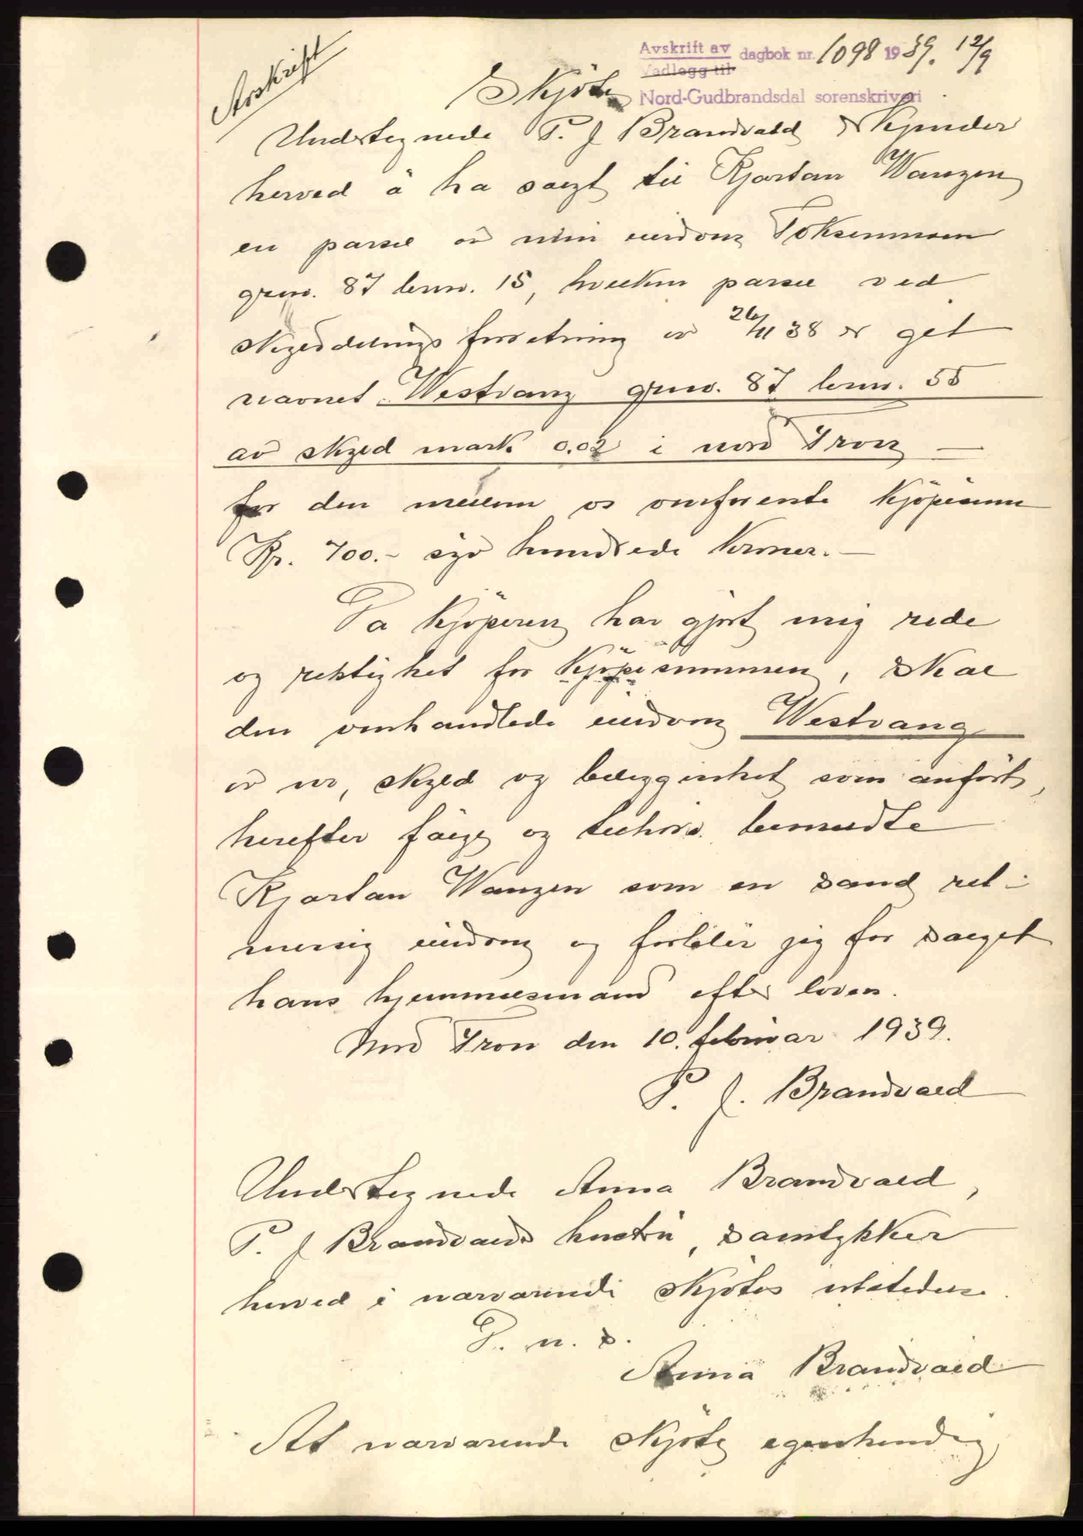 Avskrift
Avskrift av dagbok nr. 1098 1939. 12/9
Vedlegg til
Nord-Gudbrandsdal sorenskriveri
Skjöte
Undertegnede P. J. Brandvald skjøder
herved å ha solgt til Kjartan Wangen
en parsel av min eiendom Toksenmoen
grnr. 87 brnr. 15, hvilken parsel ved
skylddelings forretning av 26/11 38 er git
navnet Westvang grnr. 87 brnr. 55
av skyld mark 0.02 i nord Fron
for den mellem os omforente kjöpesum
Kr. 700.- syv hundrede kroner.
Da kjöperen har gjort mig rede
og rektighet for kjöpesummen, skal
den omhandlede eiendom Westvang
av nr, skyld og beliggenhet som anfört,
herefter fölge og tilhöre bemeldte
Kjartan Wangen som en sand ret-
messig eiendom og forblir jeg for salget
hans hjemmelsmand efter loven.
Nord Fron den 10. februar 1939.
P. J. Brandvald
Undertegnede Anna Brandvald,
P. J Brandvalds hustru, samtykker
herved i nærværende skjötes utstedelse.
D. u. s.
Anna Brandvald
At nærværende skjöte egenhendig